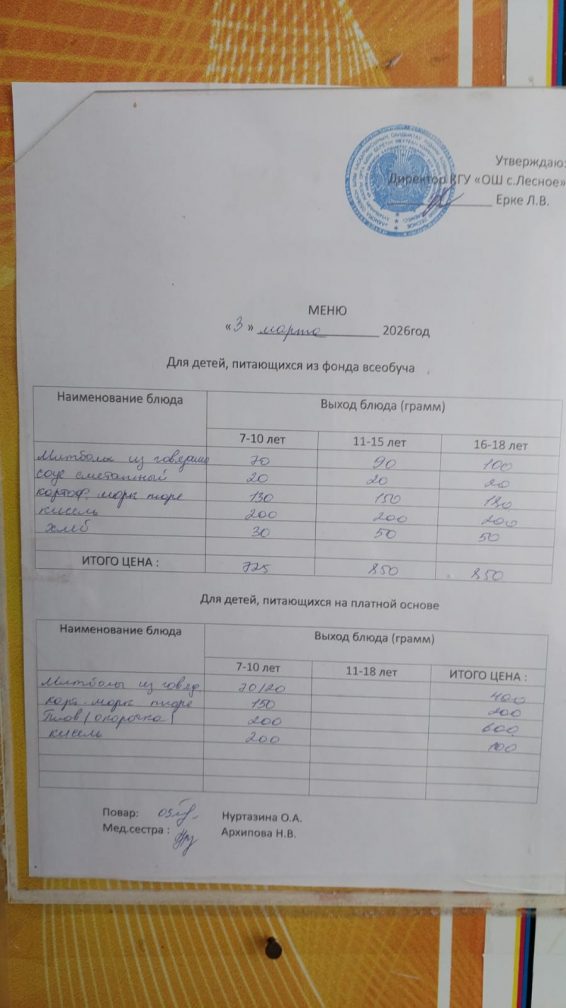 Утверждаю:
Директор КГУ «ОШ с.Лесное»
Ерке Л.В.
МЕНЮ
«3» марта 2026год
Для детей, питающихся из фонда всеобуча
Наименование блюда Выход блюда (грамм)
7-10 лет 11-15 лет 16-18 лет
Митболы из говядины 70 90 100
соус сметанный 20 20 20
картоф. морк пюре 130 150 180
кисель 200 200 200
хлеб 30 50 50
ИТОГО ЦЕНА : 725 850 850
Для детей, питающихся на платной основе
Наименование блюда Выход блюда (грамм)
7-10 лет 11-18 лет ИТОГО ЦЕНА :
Митболы из говяд 70/20 400
карт морк пюре 150 200
Плов (окорочка) 200 600
кисель 200 100
Повар: Нуртазина О.А.
Мед.сестра : Архипова Н.В.